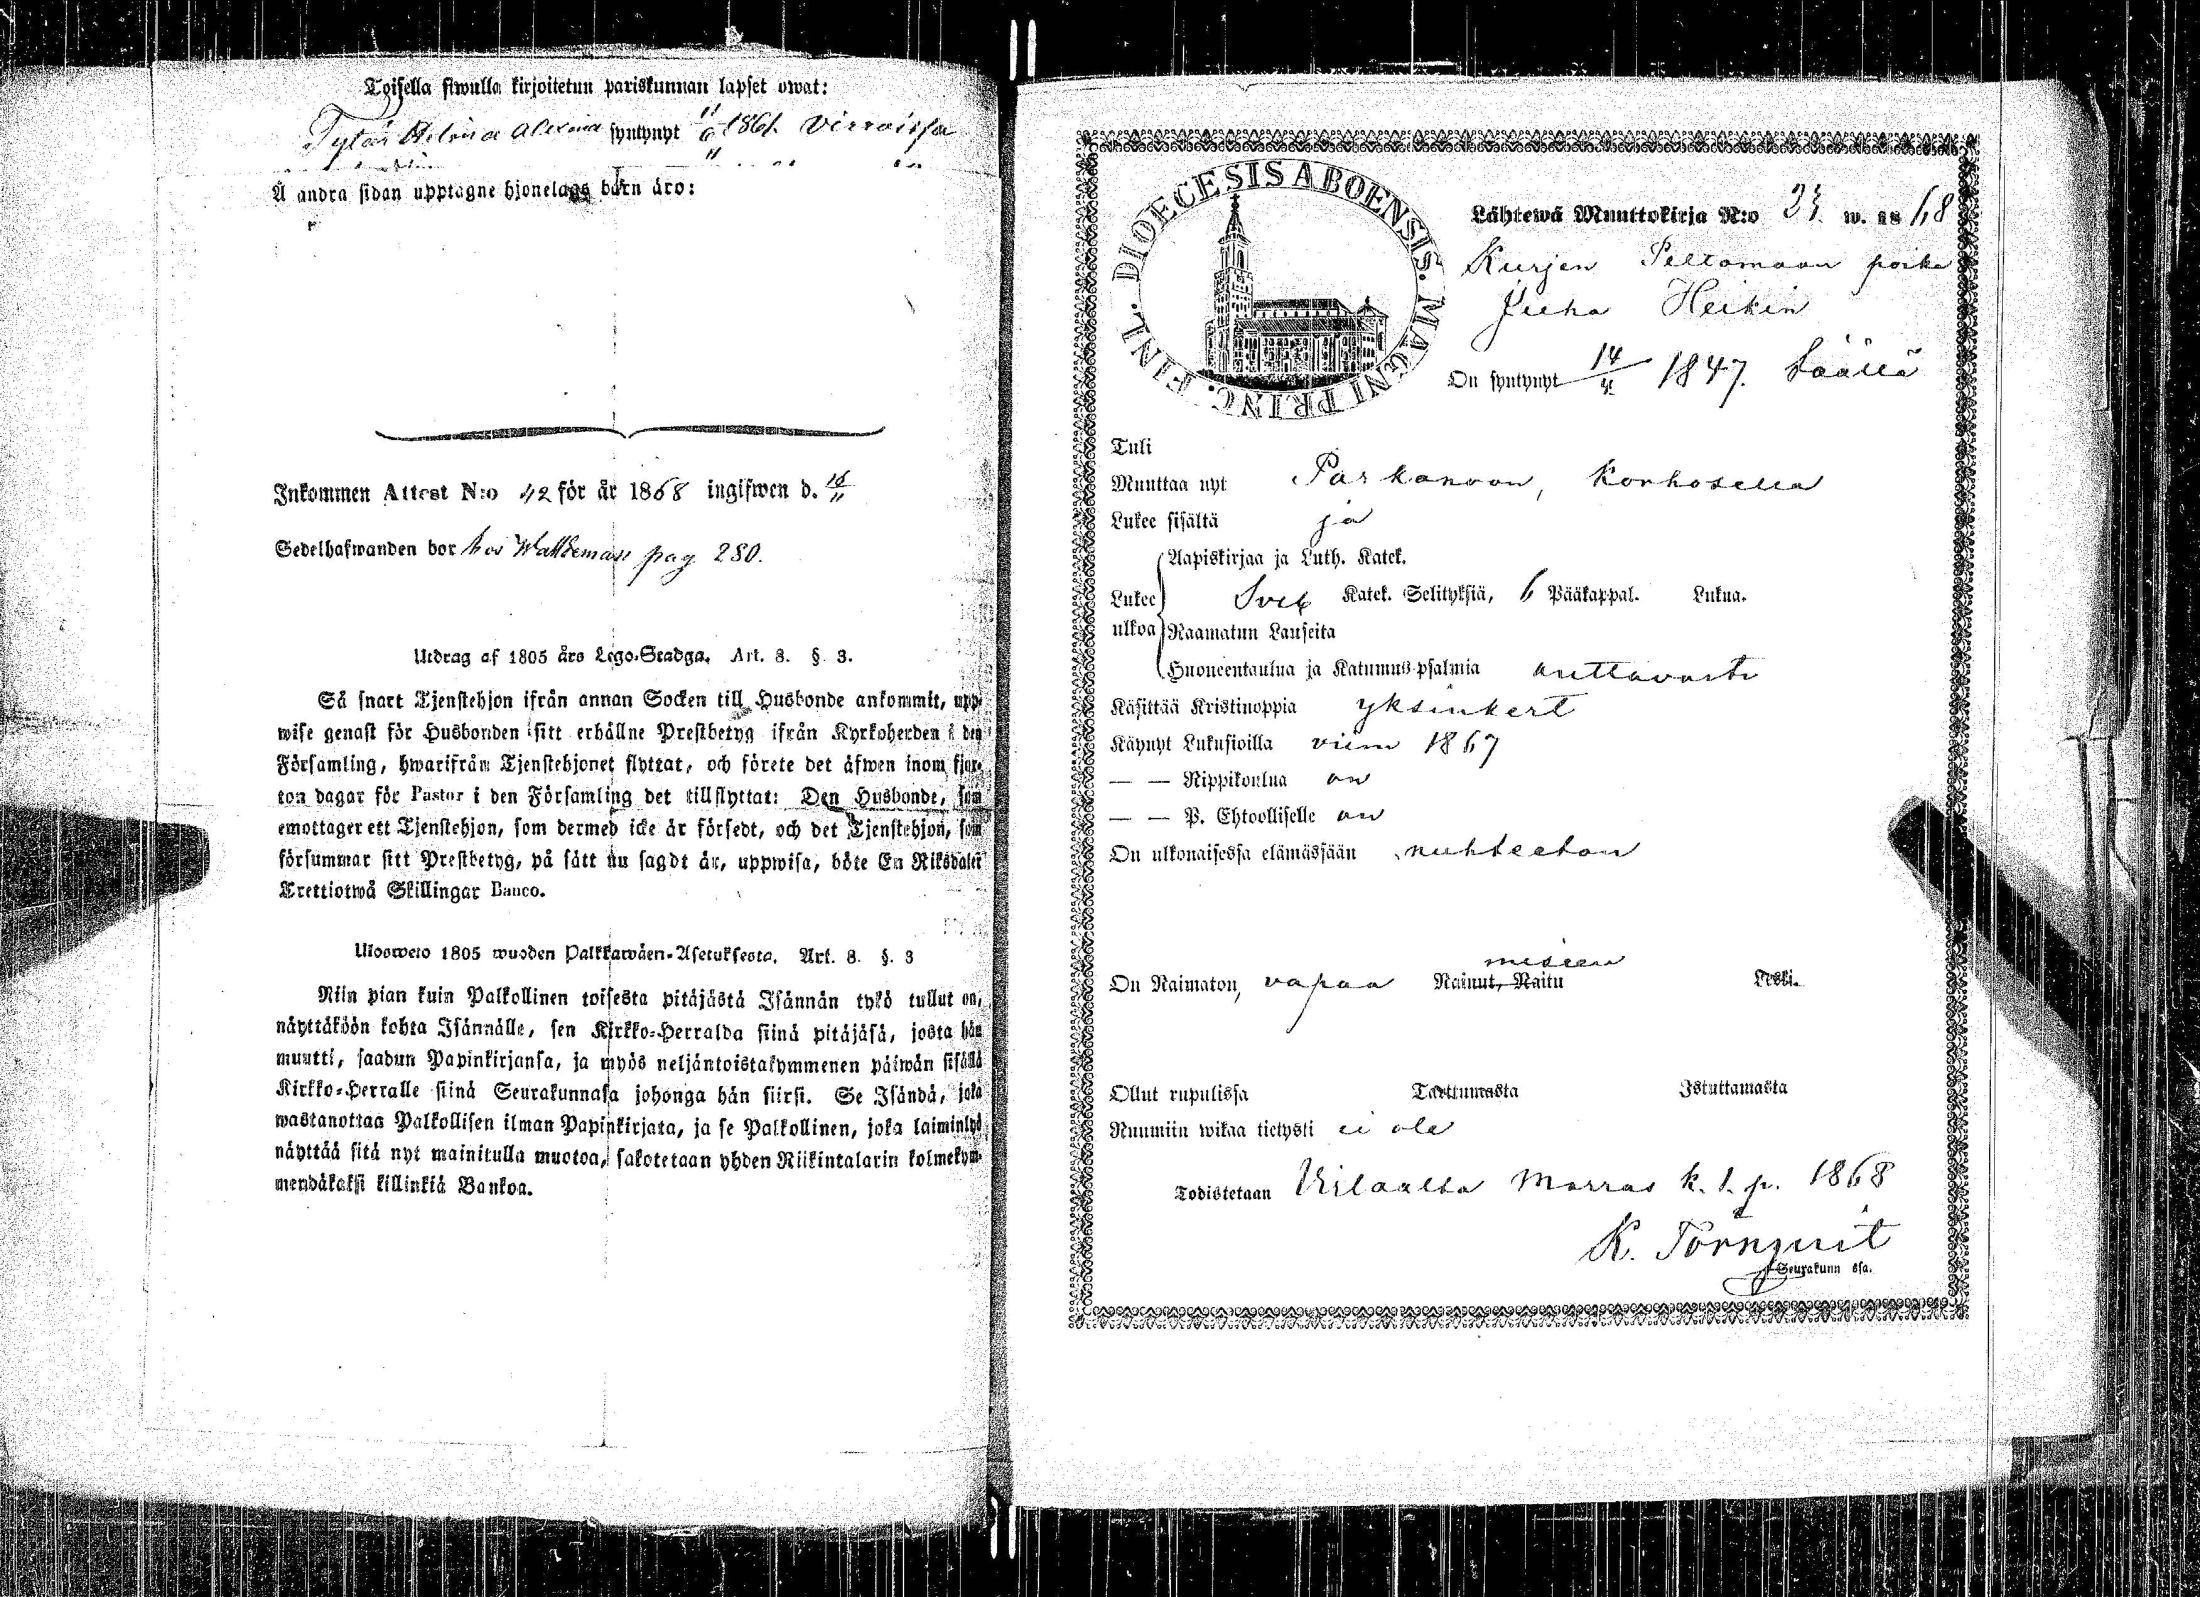 Toisella siwulla kirjoitetun pariskunnan lapset owat:
Tytär syntynyt 11/6 1861. Virroissa
Å andra sidan upptagne hjonelags barn äro:
Inkommen Attest N:o 42 för år 1868 ingifwen d. 16/11
Sedelhafwanden bor hos pag 280.
Utdrag af 1805 års Lego-Stadga. Art. 8. §. 3.
Så snart Tjenstehjon ifrån annan Socken till Husbonde ankommit, upp-
wise genast för Husbonden sitt erhållne Prestbetyg ifrån Kyrkoherden i den
Församling, hwarifrån Tjenstehjonet flyttat, och förete det äfwen inom fjor-
ton dagar för Pastor i den Församling det tillflyttat: Den Husbonde, som
emottager ett Tjenstehjon, som dermed icke är försedt, och det Tjenstehjon, som
försummar sitt Prestbetyg, på sätt nu sagdt är, uppwisa, böte En Riksdaler
Trettiotwå Skillingar Banco.
Ulosweto 1805 wuoden Palkkawäen-Asetuksesta. Art. 8. §. 3
Niin pian kuin Palkollinen toisesta pitäjästä Isännän tykö tullut on,
näyttäköön kohta Isännälle, sen Kirkko-Herralda siinä pitäjäsä, josta hän
muutti, saadun Papinkirjansa, ja myös neljäntoistakymmenen päiwän sisällä
Kirkko-Herralle siinä Seurakunnasa johonga hän siirsi. Se Isändä, joka
wastanottaa Palkollisen ilman Papinkirjata, ja se Palkollinen, joka laiminlyö
näyttää sitä nyt mainitulla muotoa, sakotetaan yhden Riikintalarin kolmekym-
mendäkaksi killinkiä Bankoa.
DIOECESIS ABOENSIS. MAGNI PRINC. FINL.
Lähtewä Muuttokirja N:o 23 w. 1868
Kurjen Peltomaan poika
Juha Heikin
On syntynyt 14/4 1847. täällä
Tuli
Muuttaa nyt Parkanoon, Korhosella
Lukee sisältä ja
Aapiskirjaa ja Luth. Katek.
Lukee Sveb Katek. Selityksiä, 6 Pääkappal. Lukua.
ulkoa Raamatun Lauseita
Huoneentaulua ja Katumus-psalmia auttavasti
Käsittää Kristinoppia yksinkert
Käynyt Lukusioilla viim 1867
— — Rippikoulua on
— — P. Ehtoolliselle on
On ulkonaisessa elämässään nuhteeton
On Naimaton, vapaa Nainut, Naitu Leski.
Ollut rupulissa Tarttumasta Istuttamasta
Ruumiin wikaa tietysti ei ole
Todistetaan Marras k. 1. p. 1868
K. Törnqvist
Seurakunn ssa.